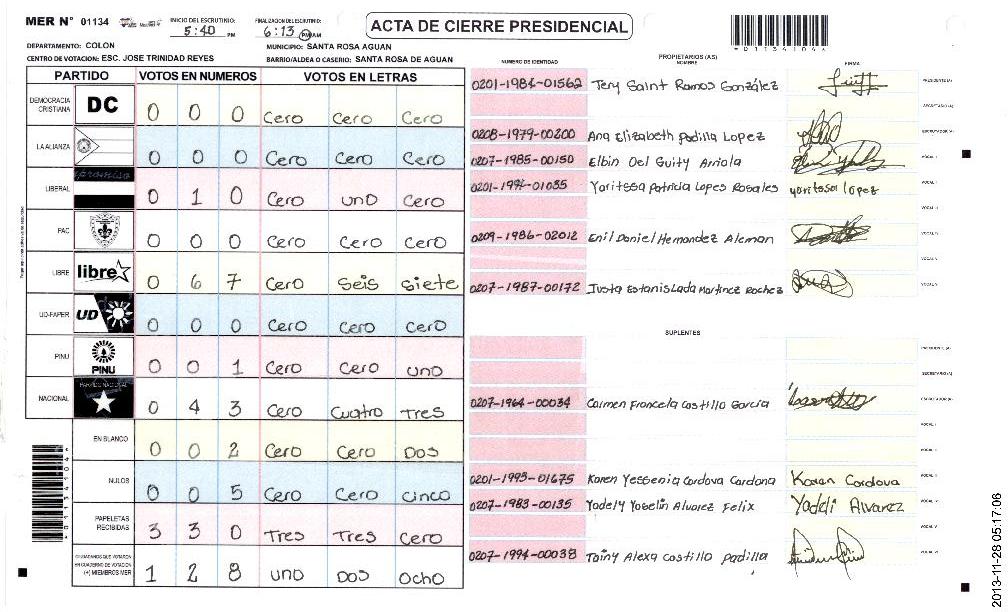 MER N° 01134
INICIO DEL ESCRUTINIO: 5:40 PM
FINALIZACION DEL ESCRUTINIO: 6:13 PM/AM
ACTA DE CIERRE PRESIDENCIAL
DEPARTAMENTO: COLON
MUNICIPIO: SANTA ROSA AGUAN
CENTRO DE VOTACION: ESC. JOSE TRINIDAD REYES
BARRIO/ALDEA O CASERIO: SANTA ROSA DE AGUAN
PARTIDO VOTOS EN NUMEROS VOTOS EN LETRAS
DEMOCRACIA CRISTIANA DC 0 0 0 Cero Cero Cero
LA ALIANZA 0 0 0 Cero Cero Cero
LIBERAL 0 1 0 Cero uno Cero
PAC 0 0 0 Cero Cero Cero
LIBRE libre 0 6 7 Cero Seis Siete
UD-FAPER UD 0 0 0 Cero Cero Cero
PINU PINU 0 0 1 Cero Cero uno
NACIONAL PARTIDO NACIONAL 0 4 3 Cero Cuatro Tres
EN BLANCO 0 0 2 Cero Cero Dos
NULOS 0 0 5 Cero Cero Cinco
PAPELETAS RECIBIDAS 3 3 0 Tres Tres Cero
CIUDADANOS QUE VOTARON EN CUADERNO DE VOTACION (+) MIEMBROS MER 1 2 8 uno Dos Ocho
NUMERO DE IDENTIDAD
PROPIETARIOS (AS)
NOMBRE
FIRMA
0201-1984-01562 Tery Saint Ramos González PRESIDENTE (A)
SECRETARIO (A)
0208-1979-00200 Ana Elizabeth Padilla Lopez ESCRUTADOR (A)
0207-1985-00150 Elbin Del Guity Arriola VOCAL I
Yaritssa Patricia Lopes Rosales yaritssa lopez
0209-1986-02012 Enil Daniel Hernandez Aleman
0207-1987-00172 Justa Estanislada Martinez Rochez
SUPLENTES
PRESIDENTE (A)
SECRETARIO (A)
0207-1964-00034 Carmen Francela Castillo Garcia ESCRUTADOR (A)
VOCAL I
0201-1993-01675 Karen Yessenia Cordova Cardona Karen Cordova
0207-1983-00135 Yadely Yobelin Alvarez Felix Yaddi Alvarez
0207-1994-00038 Tainy Alexa Castillo Padilla
2013-11-28 05:17:06